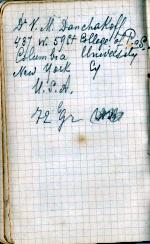 Dr V. M. Danchakoff
437 W. 59 St College of P. o S.
Columbia University
New York Cy
U. S. A.
72 Gr